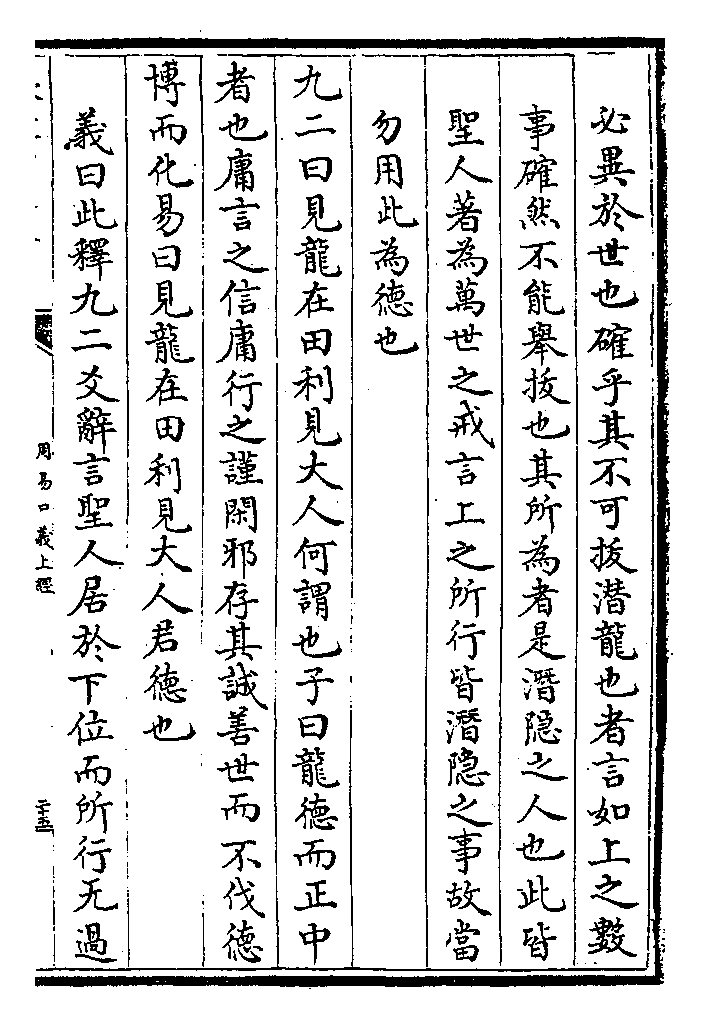 必異於世也確乎其不可拔潜龍也者言如上之數
事確然不能舉拔也其所為者是潛隐之人也此皆
聖人著為萬世之戒言上之所行皆潛隐之事故當
勿用此為德也
九二曰見龍在田利見大人何謂也子曰龍德而正中
者也庸言之信庸行之謹閑邪存其誠善世而不伐德
博而化易曰見龍在田利見大人君德也
義曰此釋九二爻辭言聖人居於下位而所行无過
周易口義上經
二十五